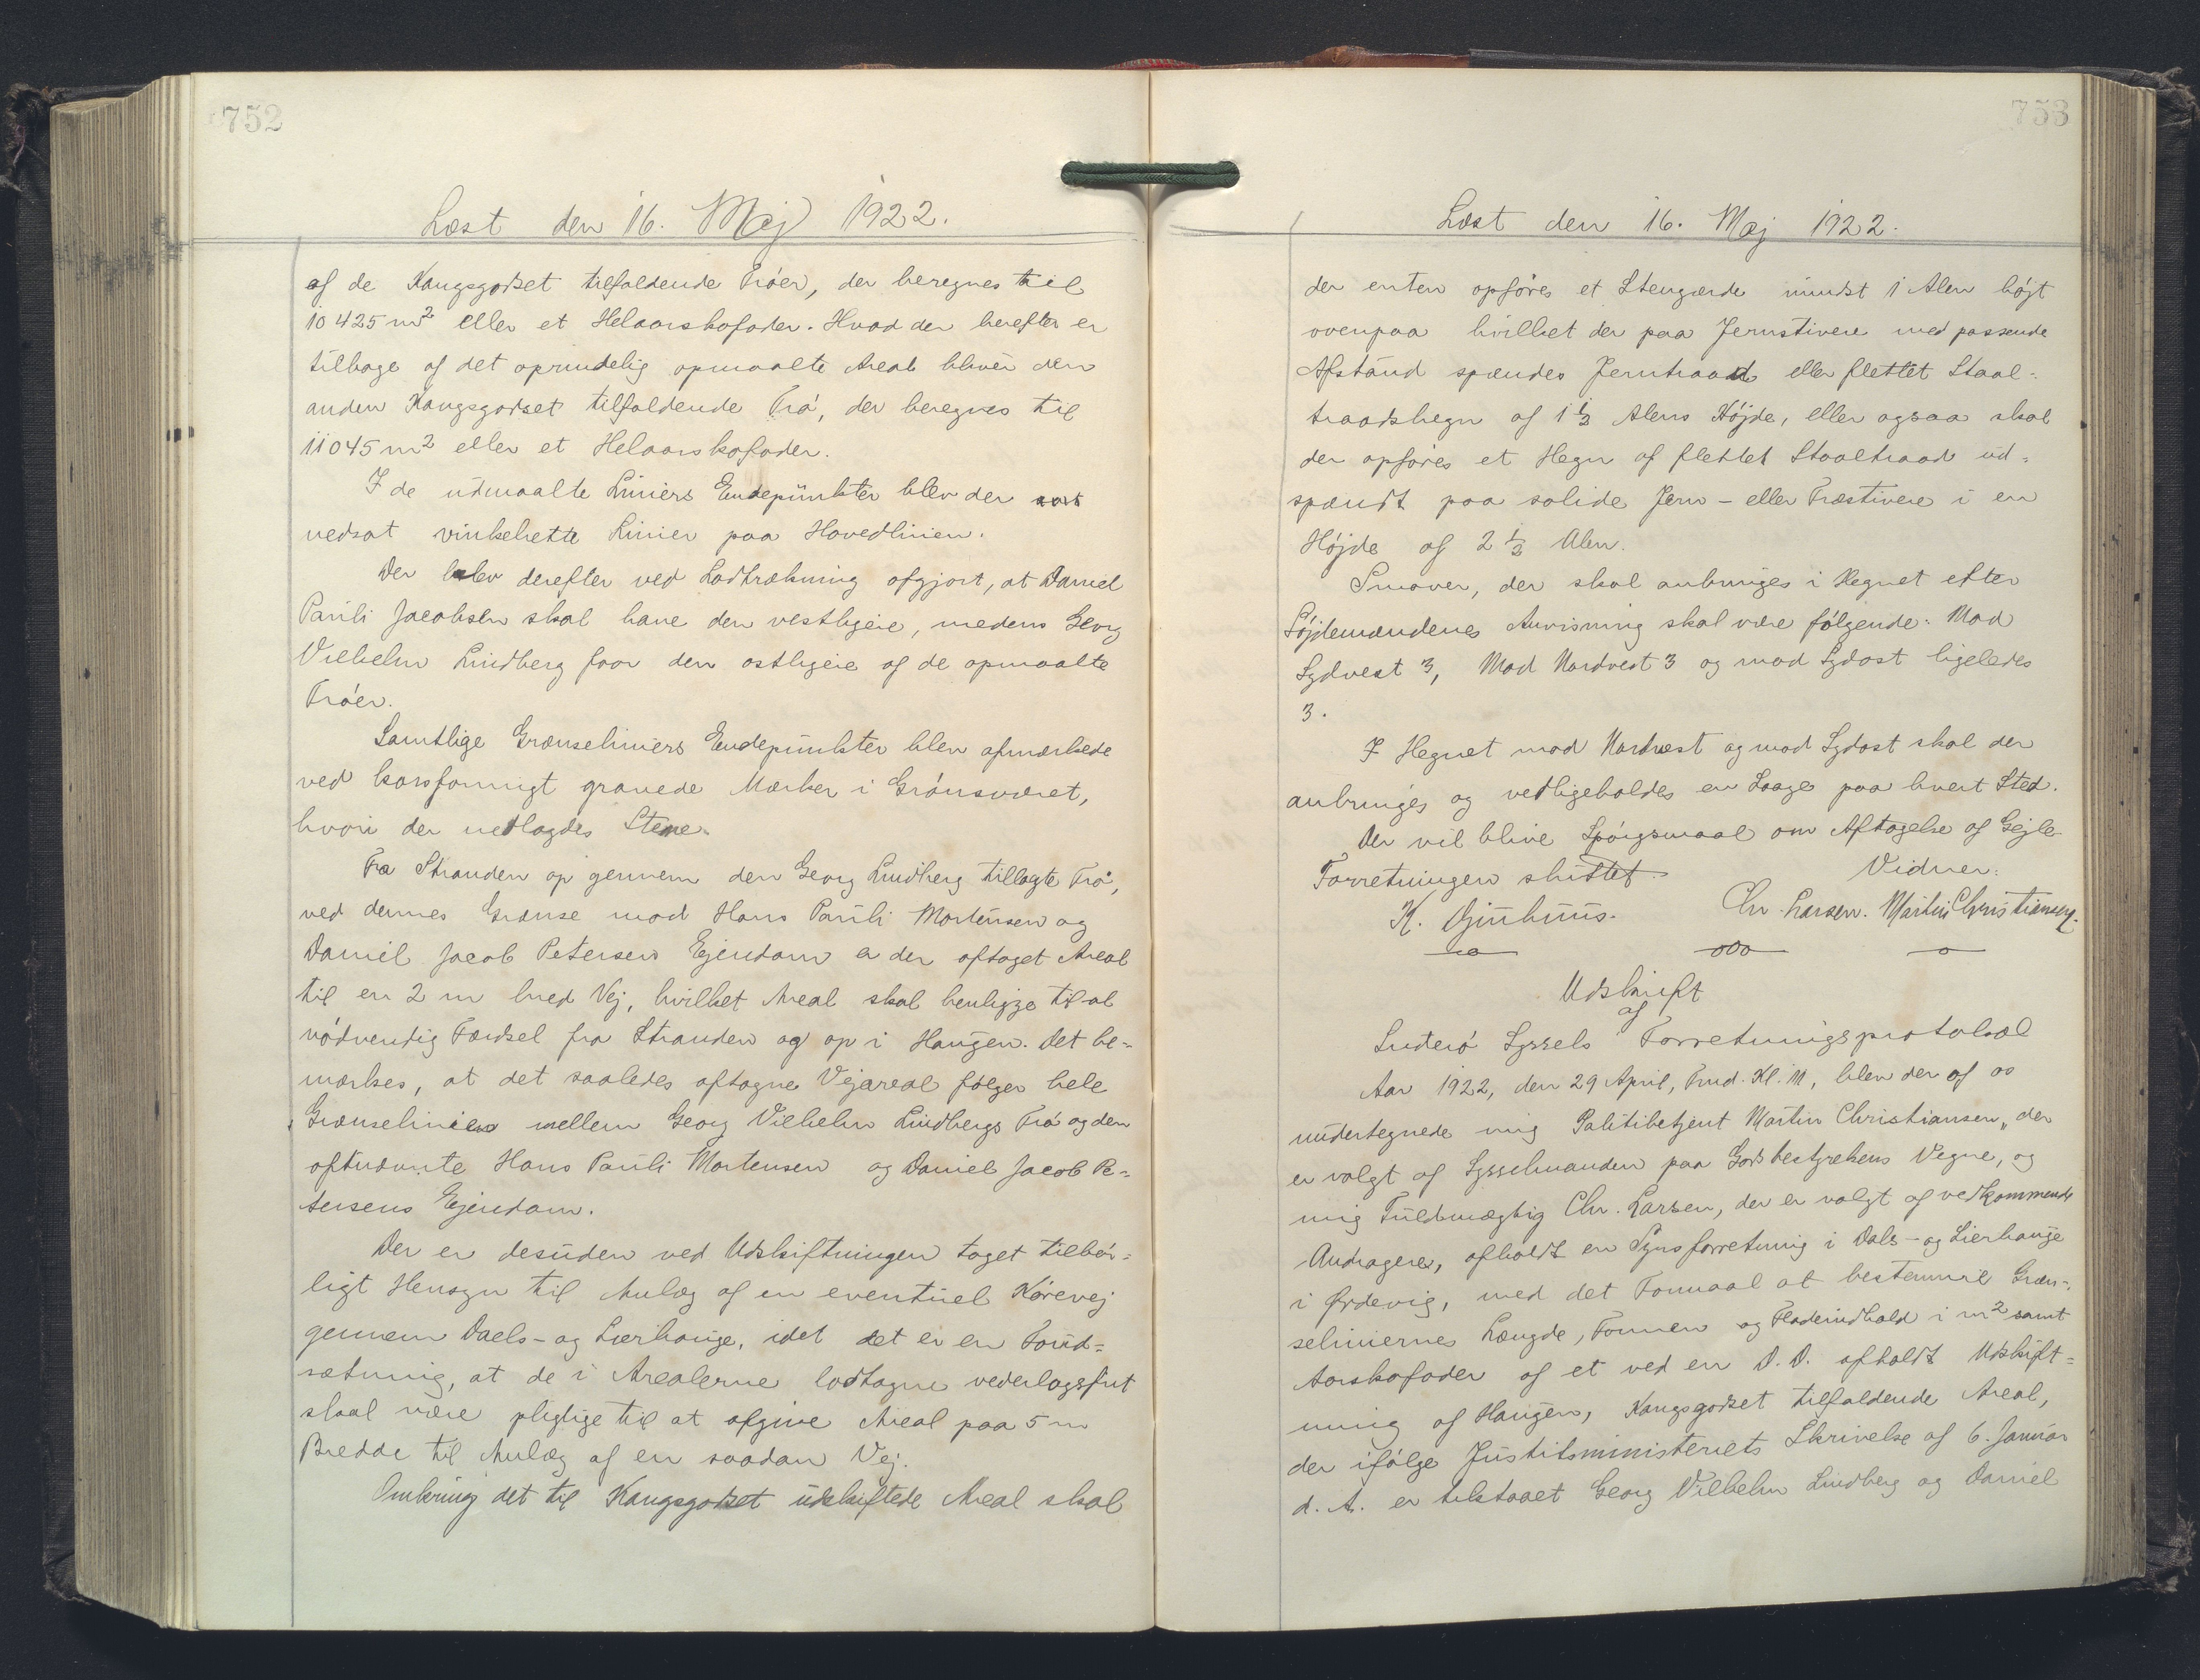 752
Læst den 16. Maj 1922.
af de Kongsgodset tilfaldende Trøer, der beregnes til
10425 m² eller et Helaarskofoder. Hvad der herefter er
tilbage af det oprindelig opmaalte Areal bliver den
anden Kongsgodset tilfaldende Trø, der beregnes til
11045 m² eller et Helaarskofoder.
I de udmaalte Liniers Endepunkter blev der
nedsat vinkelrette Linier paa Hovedlinien.
Der blev derefter ved Lodtrækning afgjort, at Daniel
Pauli Jacobsen skal have den vestligere, medens Georg
Vilhelm Lindberg faar den østligere af de opmaalte
Trøer.
Samtlige Grænseliniers Endepunkter blev afmærkede
ved korsformigt gravede Mærker i Grønsværet,
hvori der nedlagdes Stene.
Fra Stranden op gennem den Georg Lindberg tillagte Trø,
ved dennes Grænse mod Hans Pauli Mortensen og
Daniel Jacob Petersens Ejendom er der aftaget Areal
til en 2 m bred Vej, hvilket Areal skal henligge til al
nødvendig Færdsel fra Stranden og op i Haugen. Det be=
mærkes, at det saaledes aftagne Vejareal følger hele
Grænselinien mellem Georg Vilhelm Lindbergs Trø og den
oftnævnte Hans Pauli Mortensen og Daniel Jacob Pe=
tersens Ejendom.
Der er desuden ved Udskiftningen taget tilbør=
ligt Hensyn til Anlæg af en eventuel Kørevej
gennem Daels- og Lierhauge, idet det er en Forud=
sætning, at de i Arealerne lodtagne vederlagsfrit
skal være pligtige til at afgive Areal paa 5 m
Bredde til Anlæg af en saadan Vej.
Omkring det til Kongsgodset udskiftede Areal skal
753
Læst den 16. Maj 1922.
der enten opføres et Stengærde mindst 1 Alen højt
ovenpaa hvilket der paa Jernstivere med passende
Afstand spændes Jerntraad eller flettet Staal=
traadshegn af 1½ Alens Højde, eller ogsaa skal
der opføres et Hegn af flettet Staaltraad ud=
spændt paa solide Jern- eller Træstivere i en
Højde af 2½ Alen.
Smaver, der skal anbringes i Hegnet efter
Føjdemændenes Anvisning skal være følgende: Mod
Sydvest 3, Mod Nordvest 3 og mod Sydøst ligeledes
3.
I Hegnet mod Nordvest og mod Sydøst skal der
anbringes og vedligeholdes en Laage paa hvert Sted.
Der vil blive Spørgsmaal om Aftagelse af Gejle
Forretningen sluttet. Vidner:
K. Djuhuus. Chr. Larsen. Martin Christiansen.
Udskrift
af
Suderø Syssels Forretningsprotokol
Aar 1922, den 29 April, Fmd. Kl. 11, blev der af os
undertegnede mig Politibetjent Martin Christiansen, der
er valgt af Sysselmanden paa Godsbestyrelsens Vegne, og
mig Fuldmægtig Chr. Larsen, der er valgt af vedkommende
Andragere, afholdt en Synsforretning i Dals- og Lierhauge
i Ørdevig, med det Formaal at bestemme Græn=
seliniernes Længde, Formen og Fladeindhold i m² samt
Aarskofoder af et ved en D. D. afholdt Udskift=
ning af Haugen, Kongsgodset tilfaldende Areal,
der ifølge Justitsministeriets Skrivelse af 6. Januar
d. A. er tilstaaet Georg Vilhelm Lindberg og Daniel